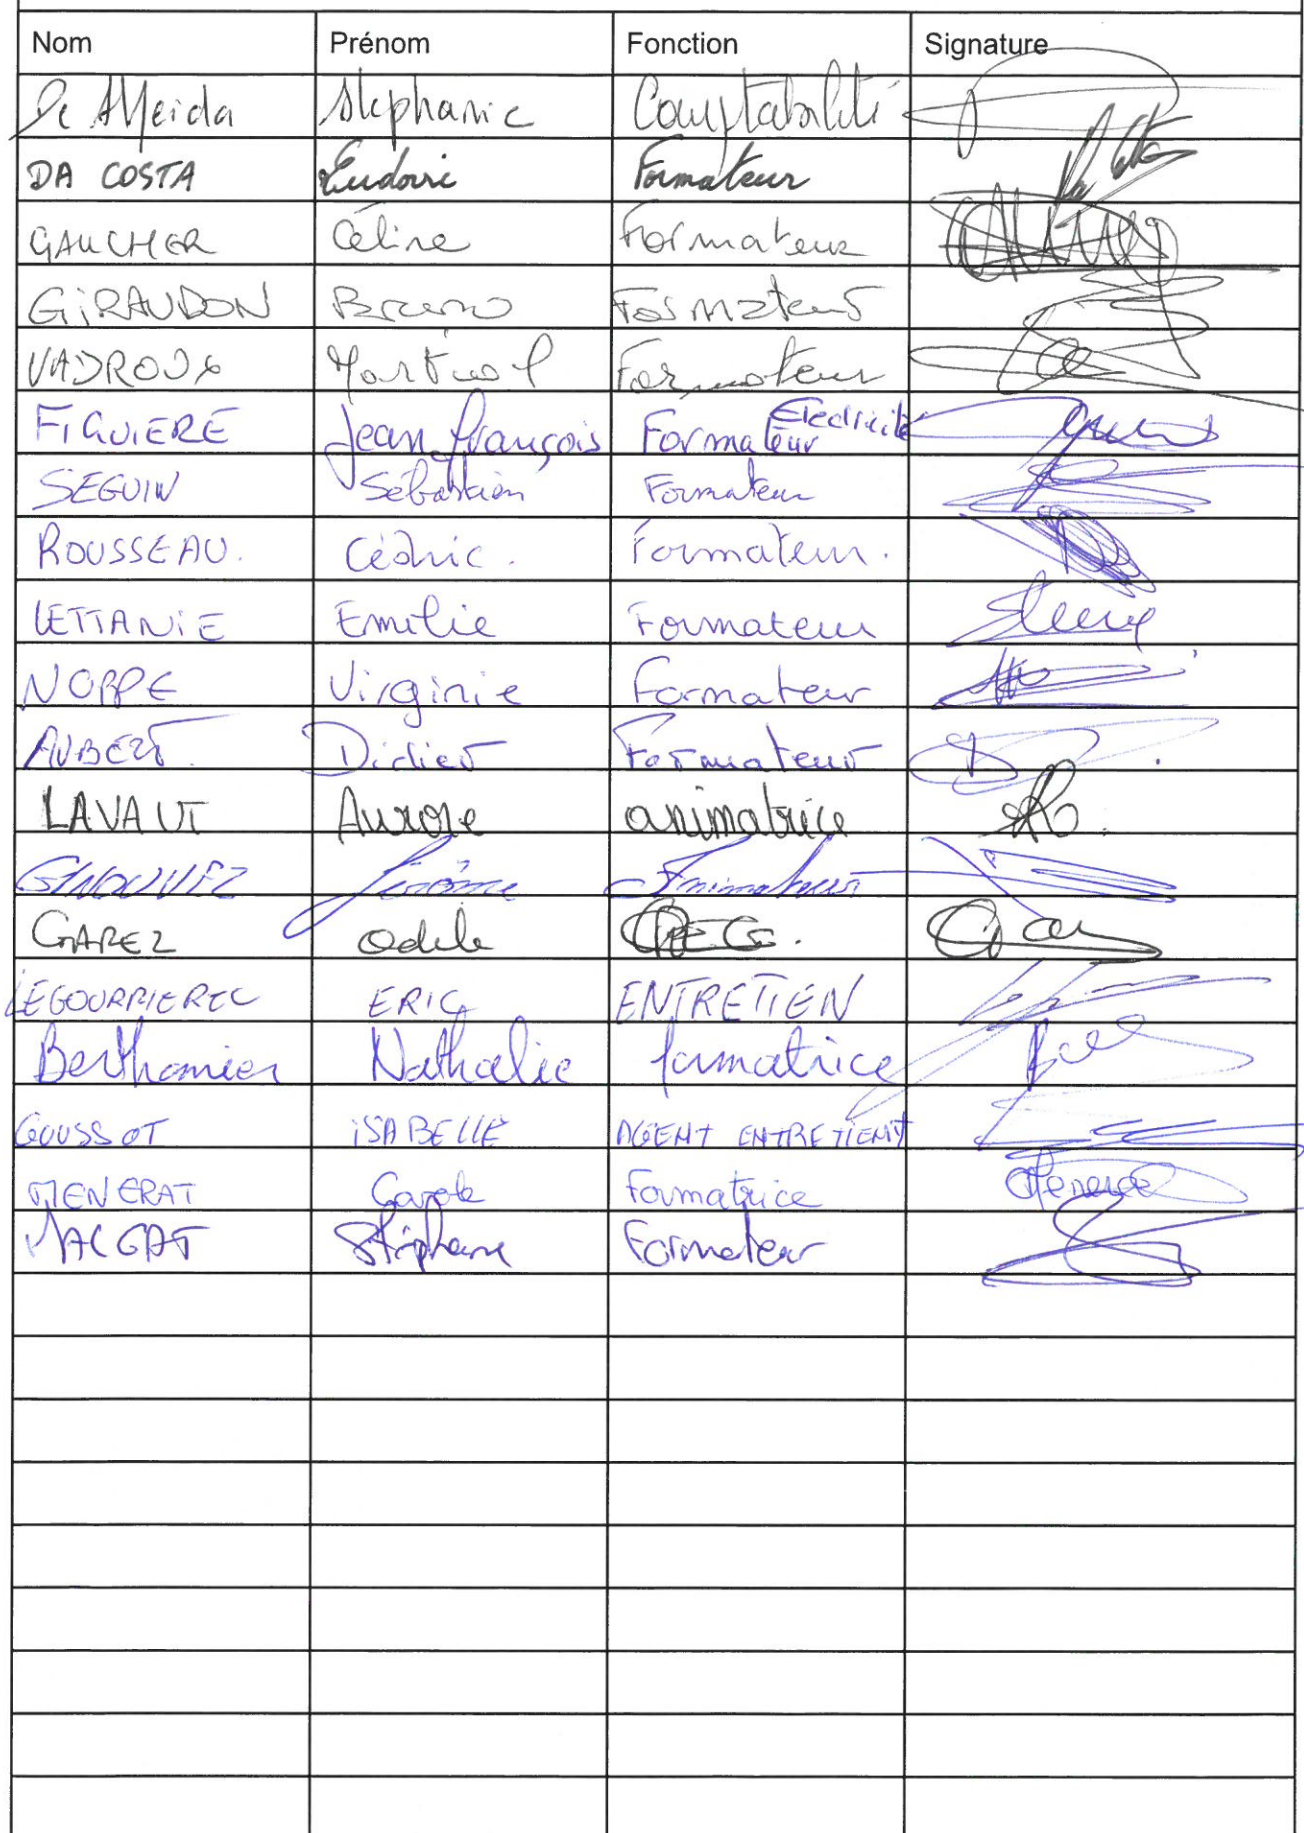 Nom Prénom Fonction Signature
De Almeida Stéphanie Comptabilité
DA COSTA Eudoxie Formateur
GAUCHER Céline Formateur
GIRAUDON Bruno Formateur
VADROUX Martial Formateur
FIGUIERE Jean françois Formateur Electricité
SEGUIN Sébastien Formateur
ROUSSEAU. Cédric. Formateur.
LETTANIE Emilie Formateur
NOPPE Virginie Formateur
AUBERT. Didier Formateur
LAVAUT Aurore animatrice
Jérôme Animateur
GAREZ Odile
LEGOURRIEREC ERIC ENTRETIEN
Berthomier Nathalie formatrice
GOUSSOT ISABELLE AGENT ENTRETIENT
MENERAT Carole Formatrice
Stéphane Formateur